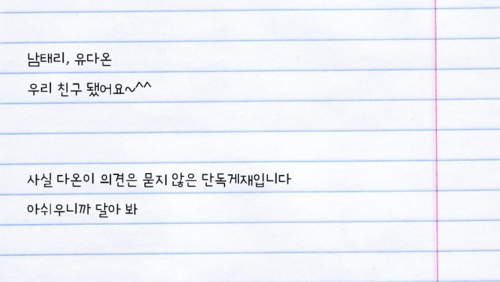 남태리, 유다온
우리 친구 됐어요~^^
사실 다온이 의견은 묻지 않은 단독게재입니다
아쉬우니까 달아 봐